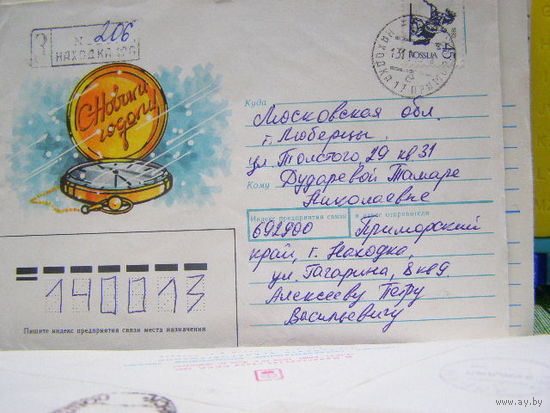 З № 206
НАХОДКА 17
С Новым
годом!
ROSSIJA
45
Куда Московская обл.
г. Люберцы
ул Толстого, 29 кв 31
Кому Дударевой Тамаре
Николаевне
Индекс предприятия связи и адрес отправителя
692900 Приморский
край, г. Находка,
ул. Гагарина, 8 кв 9
Алексееву Петру
Васильевичу
140013
Пишите индекс предприятия связи места назначения
www.ay.by